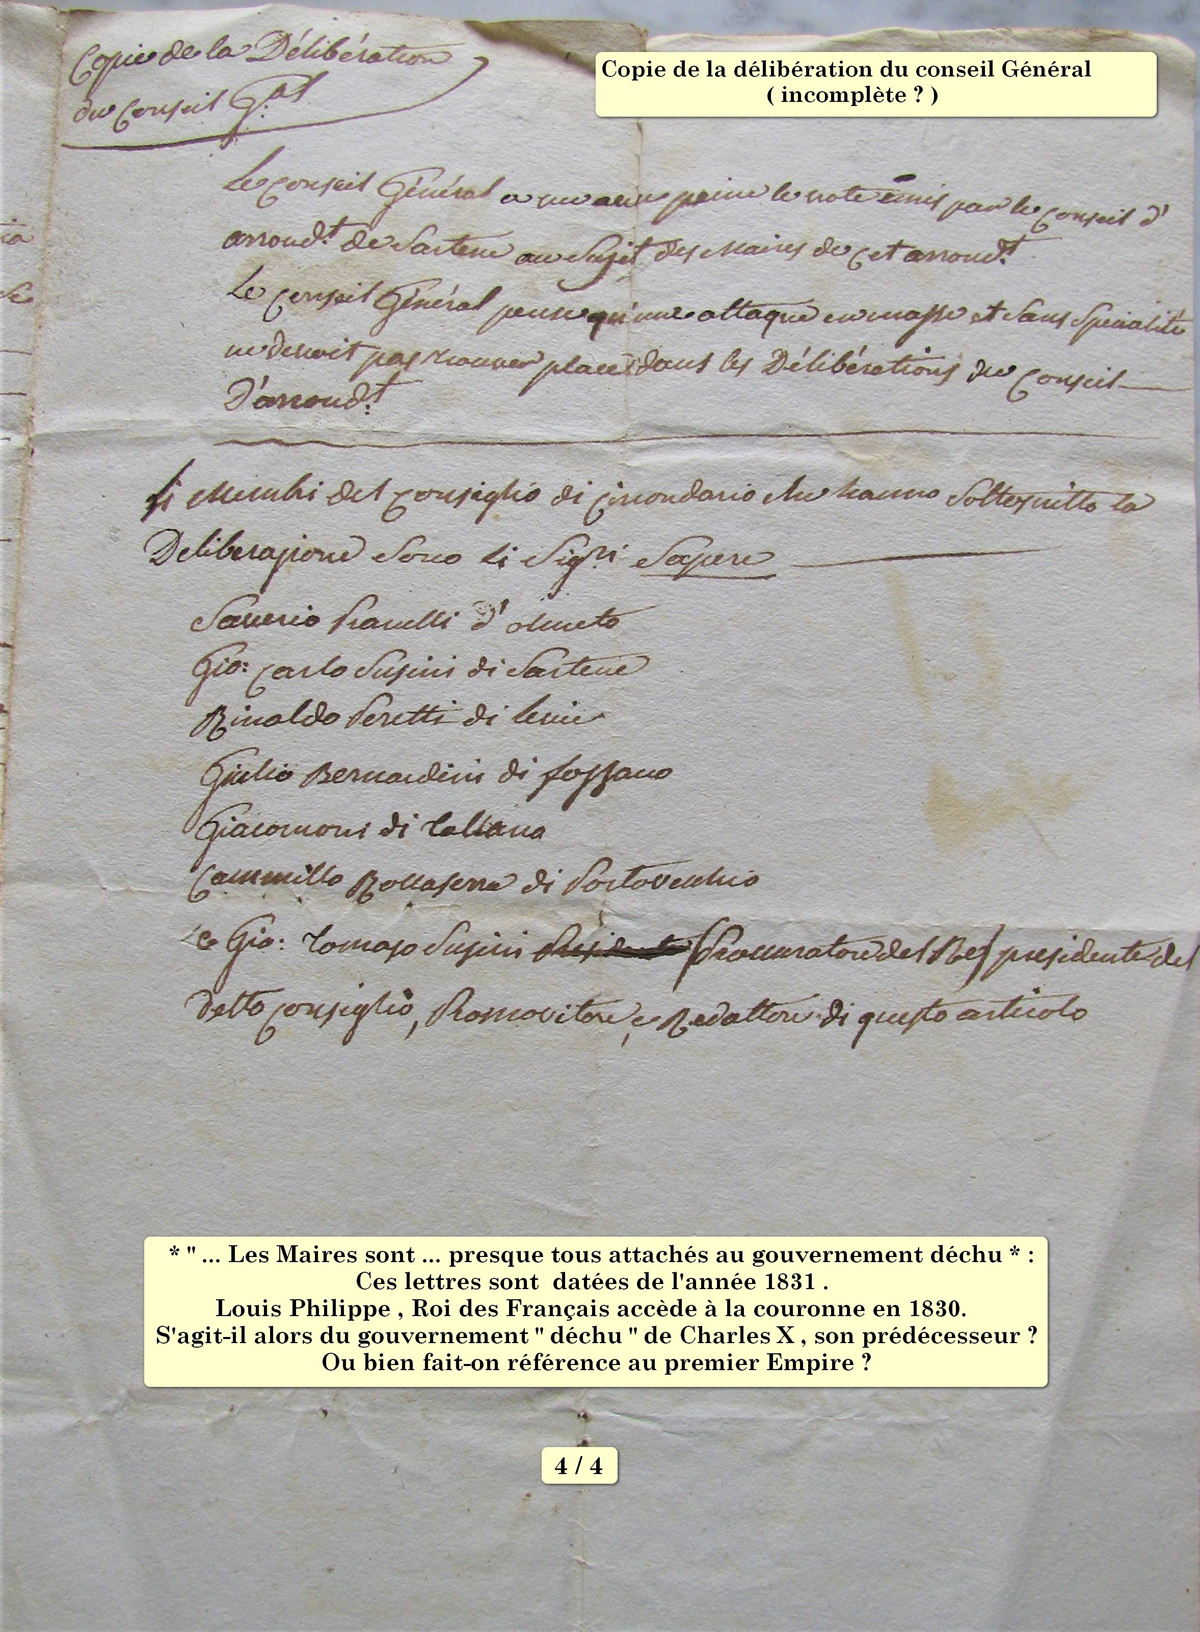 Copie de la Délibération
du Conseil G.al
Copie de la délibération du conseil Général
( incomplète ? )
Le Conseil Général a vu avec peine le vote émis par le Conseil d'
arrond.t de Sartene au Sujet des Maires de Cet arrond.t
Le Conseil Général pense qu'une attaque en masse et Sans Spécialité
ne devoit pas trouver place dans les Délibérations du Conseil
D'arrond.t
Li Membri del Consiglio di Circondario che hanno Sottoscritto la
Deliberazione Sono li Sig.ri Sapere
Saverio Pianelli d'olmeto
Gio: Carlo Susini di Sartene
Rinaldo Peretti di levie
Giulio Bernardini di fozzano
Giacomoni di Tallano
Cammillo Roccaserra di Portovecchio
Gio: Tomaso Susini (Procuratore del Re) presidente del
detto Consiglio, Promovitore, e Redattore di questo articolo
* " ... Les Maires sont ... presque tous attachés au gouvernement déchu * :
Ces lettres sont datées de l'année 1831 .
Louis Philippe , Roi des Français accède à la couronne en 1830.
S'agit-il alors du gouvernement " déchu " de Charles X , son prédécesseur ?
Ou bien fait-on référence au premier Empire ?
4 / 4